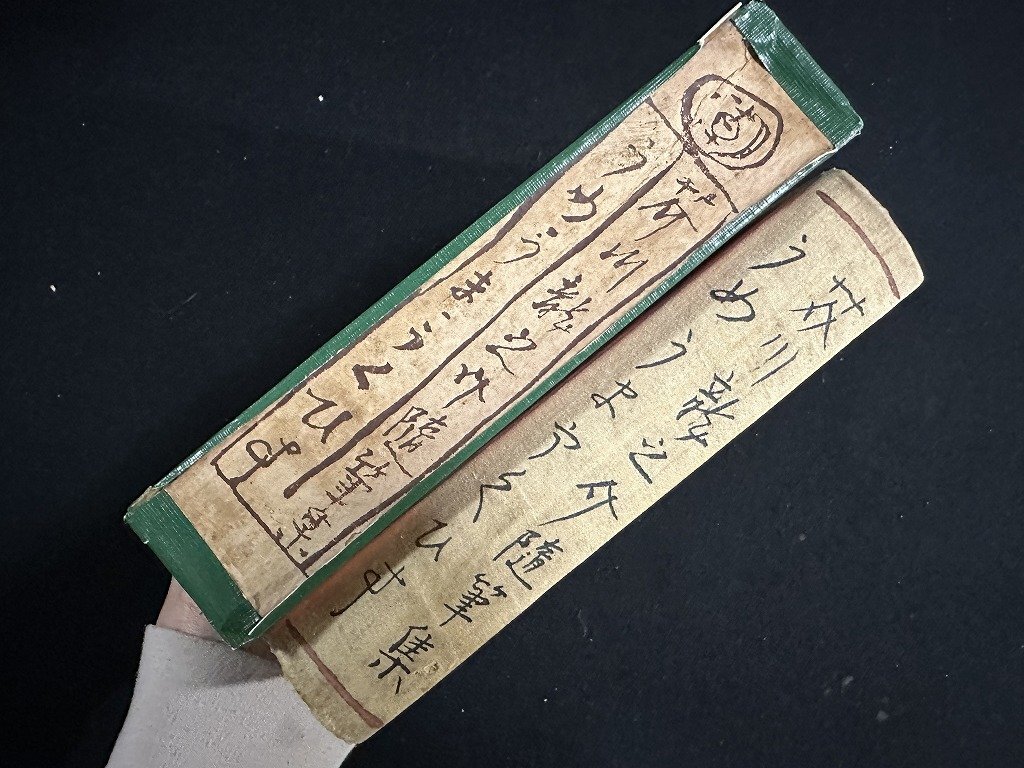 芥川龍之介隨筆集
うめうまうくひす
芥川龍之介隨筆集
うめうまうくひす